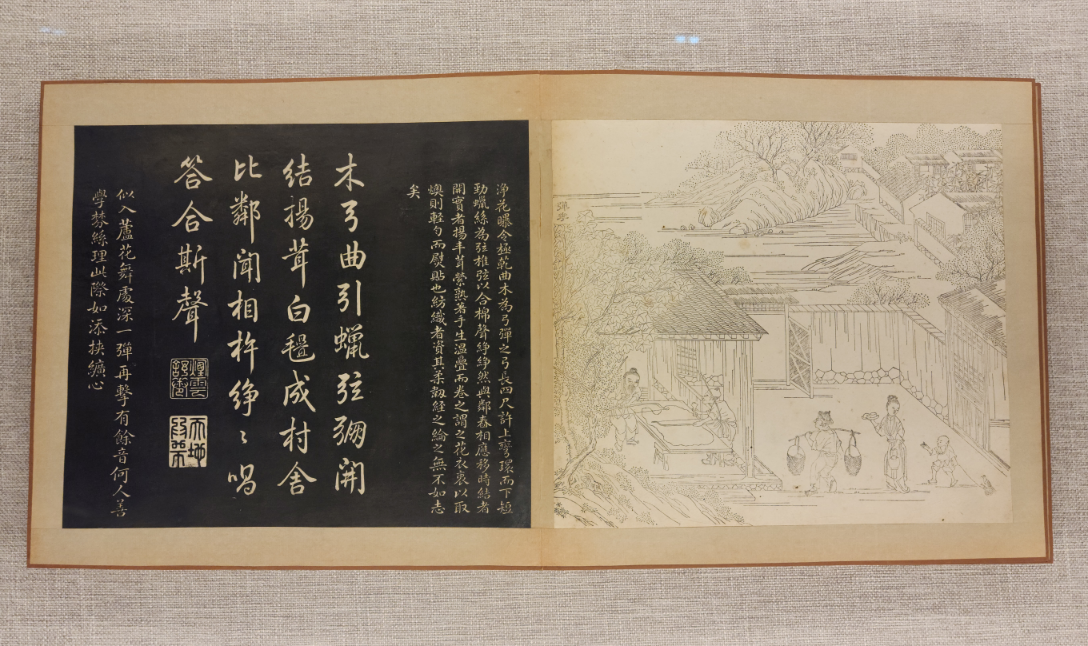 彈華
淨花曝令極乾曲木為弓彈之弓長四尺許上彎環而下短
勁蠟絲為弦椎弦以合棉聲錚錚然與鄰舂相應移時結者
開實者揚丰茸縈熟著手生溫疊而卷之謂之花衣衷以取
燠則輕勻而熨貼也紡織者資其柔韌經之綸之無不如志
矣
木弓曲引蠟弦弸開
結揚茸白氎成村舍
比鄰聞相杵錚〻唱
答合斯聲
似入蘆花舞處深一彈再擊有餘音何人善
學棼絲理此際如添挾纊心